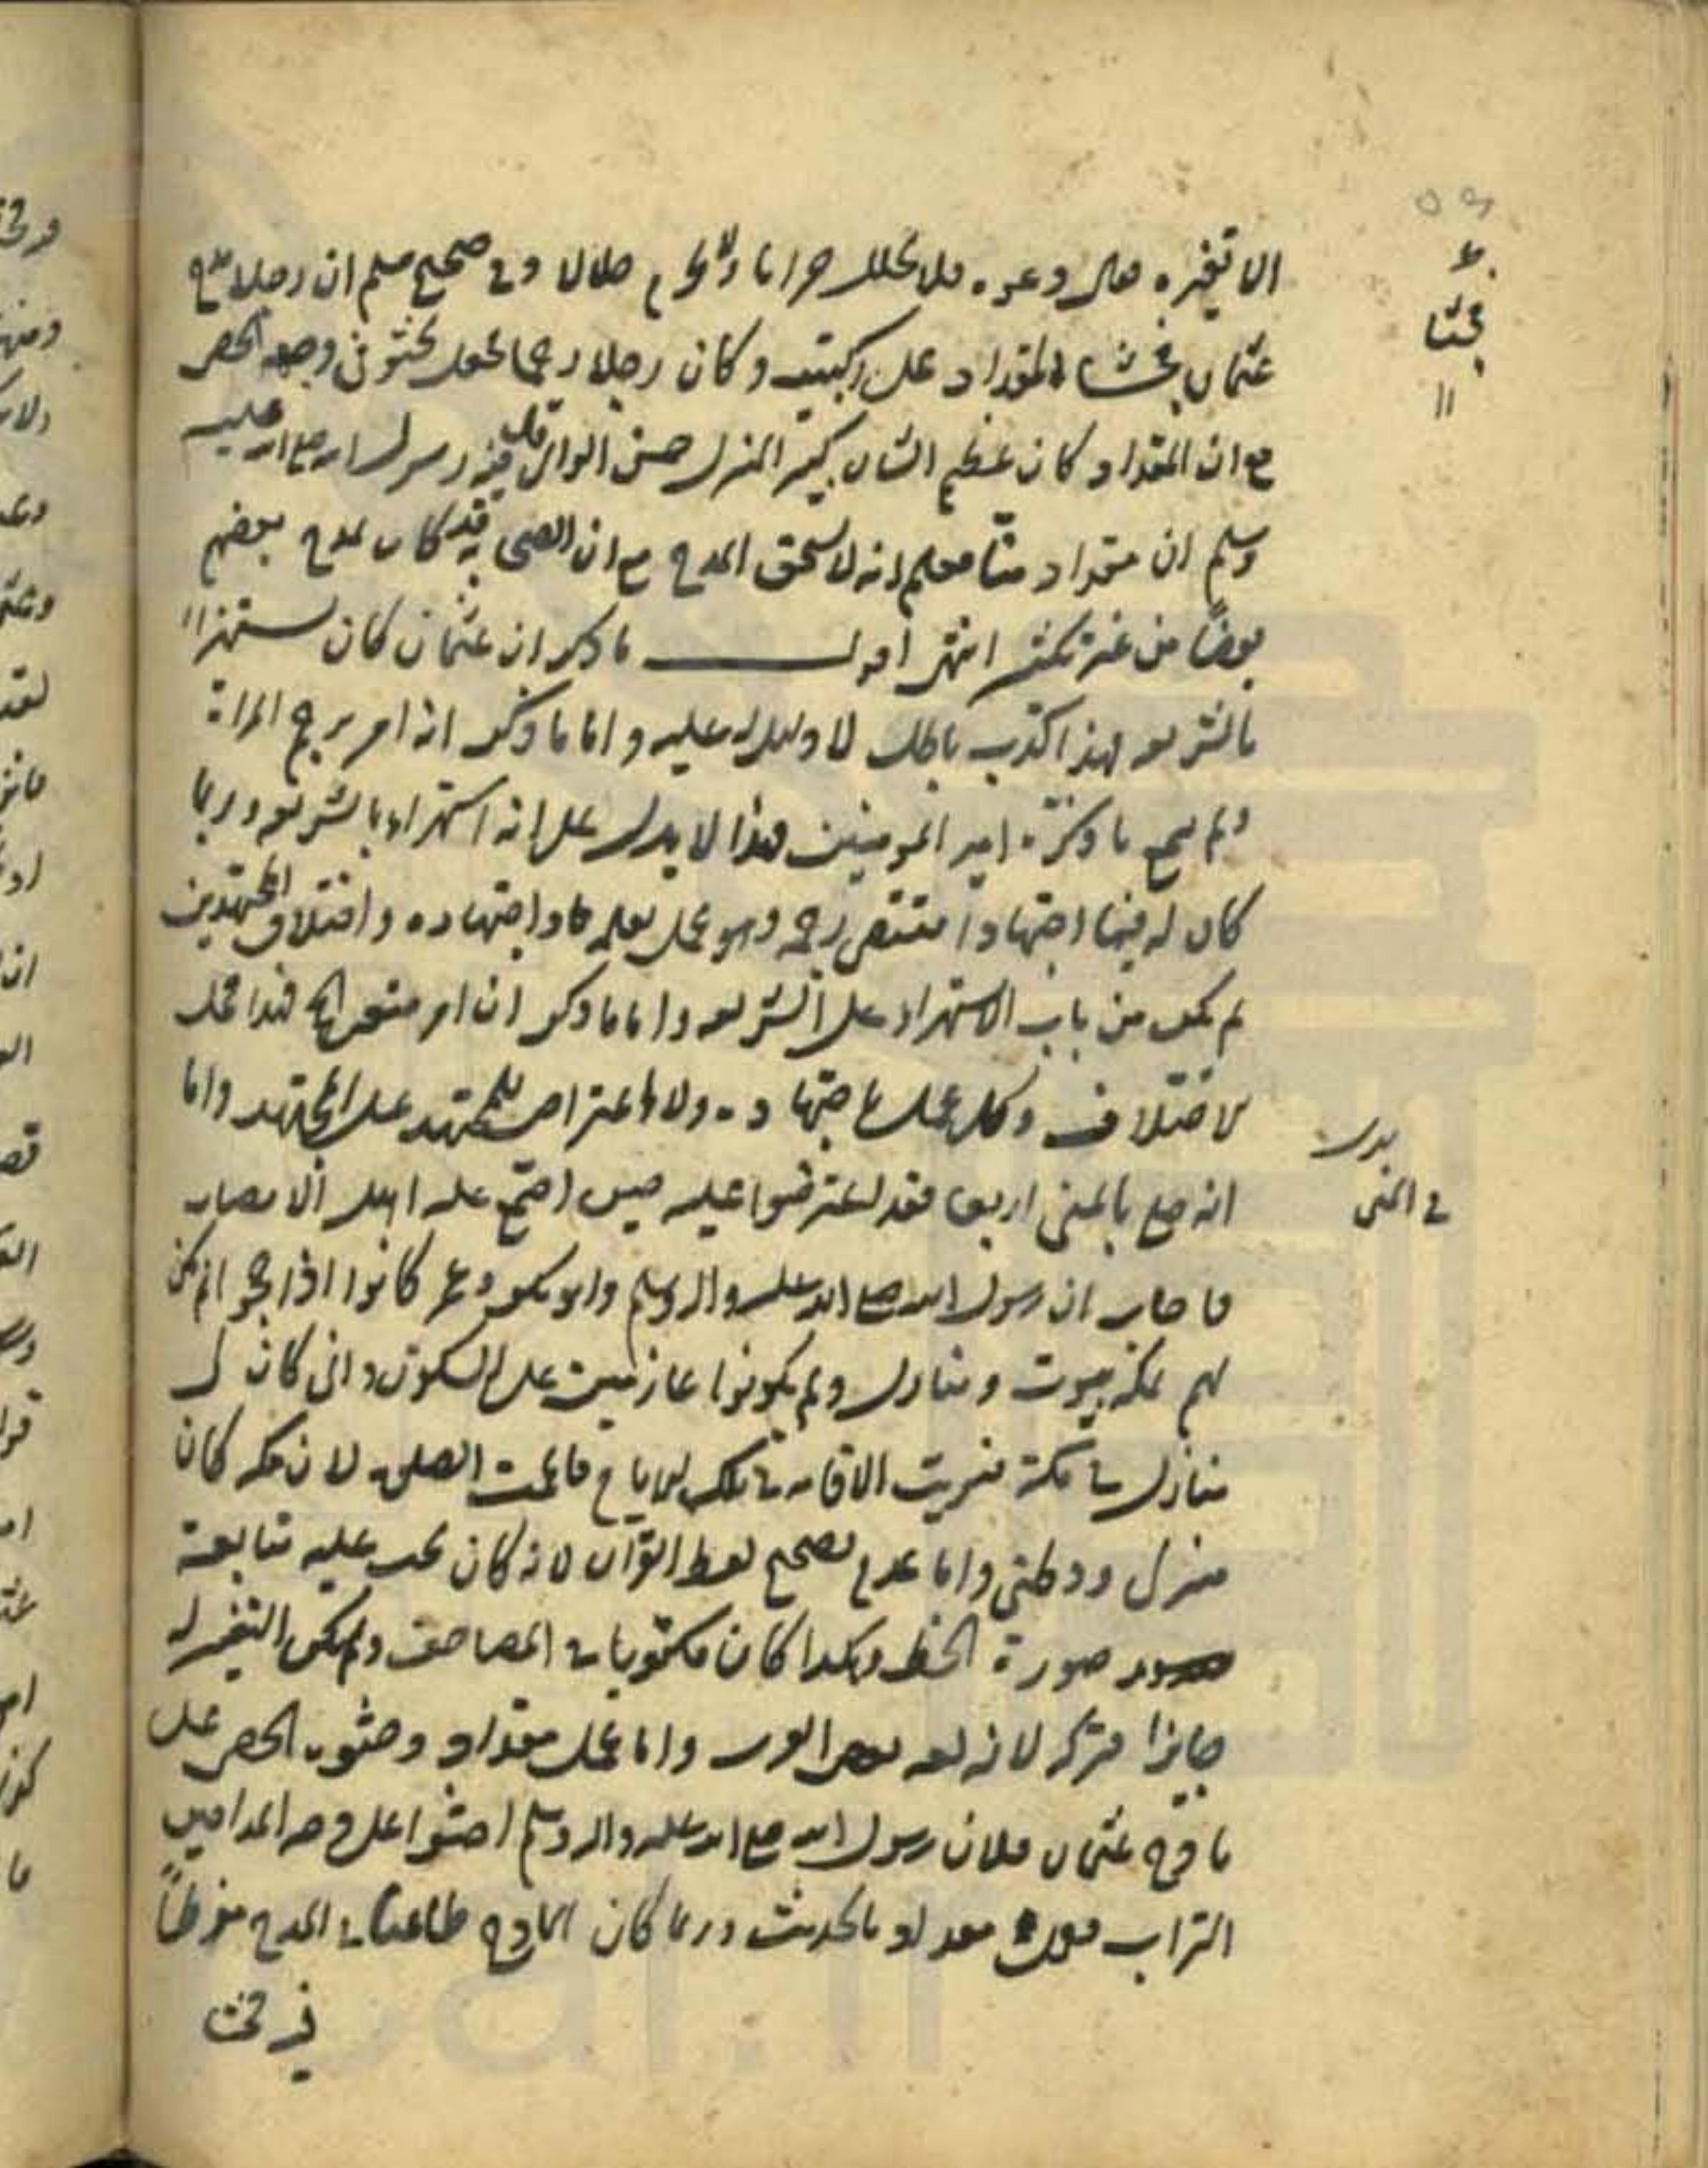 الا تغيره فقال دعوه فلا يحلل حراما ولا يحرم حلالا وفي صحيح مسلم ان رجلا مدح
عثمان فجثا المقداد على ركبتيه وكان رجلا ضخما فجعل يحثو في وجهه الحصى
مع ان المقداد كان عظيم الشان كبير المنزلة حسن الراى قال فيه رسول الله صلى الله عليه
وسلم ان مقداد منا فعلم انه لا يستحق المدح مع ان الصحابة قد كان يمدح بعضهم
بعضا من غير نكير انتهى اقول ما ذكر ان عثمان كان يستهزأ
بالشريعة فهذا كذب باطل لا دليل له عليه و اما ما ذكر انه امر برجم المراة
ولم يسمع ما ذكره امير المومنين فهذا لا يدل على انه استهزاء بالشريعة و ربما
كان له فيها اجتهادا مقتضى رجمه وهو عمل بعلمه واجتهاده واختلاف المجتهدين
لم يكن من باب الاستهزاء على الشريعة واما ما ذكر انه امر فهذا محل
الاختلاف وكل عمل باجتهاده ولا اعتراض للمجتهد على المجتهد واما
انه صلى بالمنى اربعا فقد اعترضوا عليه حين اجتمع عليه اهل الامصار
فاجاب ان رسول الله صلى الله عليه واله وسلم وابو بكر وعمر كانوا اذا حجوا لم يكن
لهم بمكة بيوت و منازل ولم يكونوا عازمين على السكون و انى كان لى
منازل في مكة فنويت الاقامة في تلك الايام فاتممت الصلوة لان مكة كان
منزلى ووطنى واما عدم تصحيح لفظ القران لانه كان يجب عليه متابعة
صورة الخط وهكذا كان مكتوبا في المصاحف ولم يكن التغير له
جايزا فتركه لانه لغة بعض العرب واما عمل مقداد وحثوه الحصى على
مادح عثمان فلان رسول الله صلى الله عليه واله وسلم احثوا على وجه المداحين
التراب فعمل مقداد بالحديث وربما كان المادح طاعنا في المدح مفرطا
فيه تحت
بدل
في المنى
فجثا